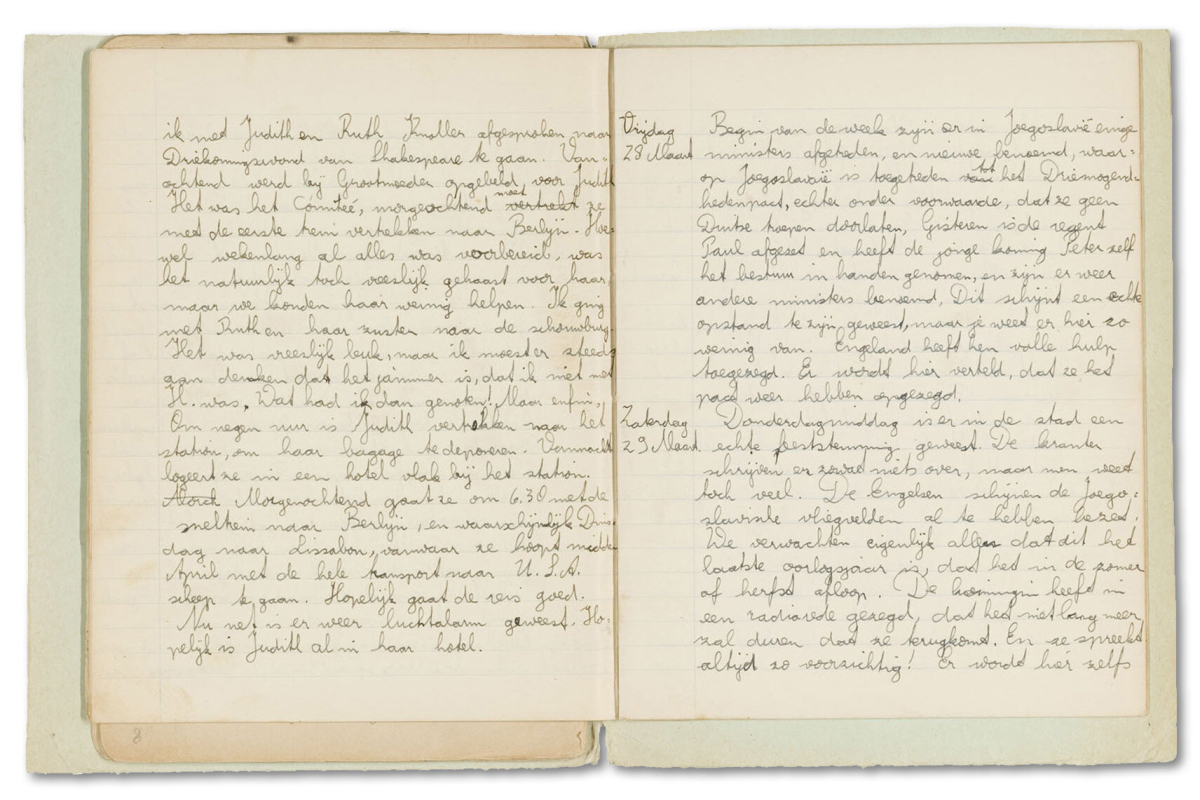 ik met Judith en Ruth Knoller afgesproken naar
Driekoningsavond van Shakespeare te gaan. Van-
ochtend werd bij Grootmoeder opgebeld, voor Judith
Het was het Comiteé, morgeochtend moet vertrekt ze
met de eerste trein vertrekken naar Berlijn. Hoe-
wel wekenlang al alles was voorbereid, was
het natuurlijk toch vreeslijk gehaast voor haar,
maar we konden haar weinig helpen. Ik ging
met Ruth en haar zuster naar de schouwburg.
Het was vreeslijk leuk, maar ik moest er steeds
aan denken dat het jammer is, dat ik niet met
H. was. Wat had ik dan genoten! Maar enfin,
Om negen uur is Judith vertrokken naar het
station, om haar bagage te deponeren. Vannacht
logeert ze in een hotel vlak bij het station.
Morch Morgenochtend gaat ze om 6.30 met de
sneltrein naar Berlijn, en waarschijnlijk Dins-
dag naar Lissabon, vanwaar ze hoopt midden
April met de hele transport naar U.S.A.
scheep te gaan. Hopelijk gaat de reis goed.
Nu net is er weer luchtalarm geweest. Ho-
pelijk is Judith al in haar hotel.
8
Vrijdag Begin van de week zijn er in Joegoslavië enige
28 Maart ministers afgetreden, en nieuwe benoemd, waar-
op Joegoslavië is toegetreden van tot het Driemogend-
hedenpact, echter onder voorwaarde, dat ze geen
Duitse troepen doorlaten, Gisteren is de regent
Paul afgezet en heeft de jonge koning Peter zelf
het bestuur in handen genomen, en zijn er weer
andere ministers benoemd. Dit schijnt een echte
opstand te zijn geweest, maar je weet er hier zo
weinig van. Engeland heeft hen volle hulp
toegezegd. Er wordt hier verteld, dat ze het
pact weer hebben opgezegd.
Zaterdag Donderdagmiddag is er in de stad een
29 Maart echte feeststemming geweest. De kranten
schrijven er zowat niets over, maar men weet
toch veel. De Engelsen schijnen de Joego-
slavische vliegvelden al te hebben bezet.
We verwachten eigenlijk allen dat dit het
laatste oorlogsjaar is, dat het in de zomer
of herfst afloop. De koningin heeft in
een radiorede gezegd, dat het niet lang meer
zal duren dat ze terugkomt. En ze spreekt
altijd zo voorzichtig! Er wordt hier zelfs